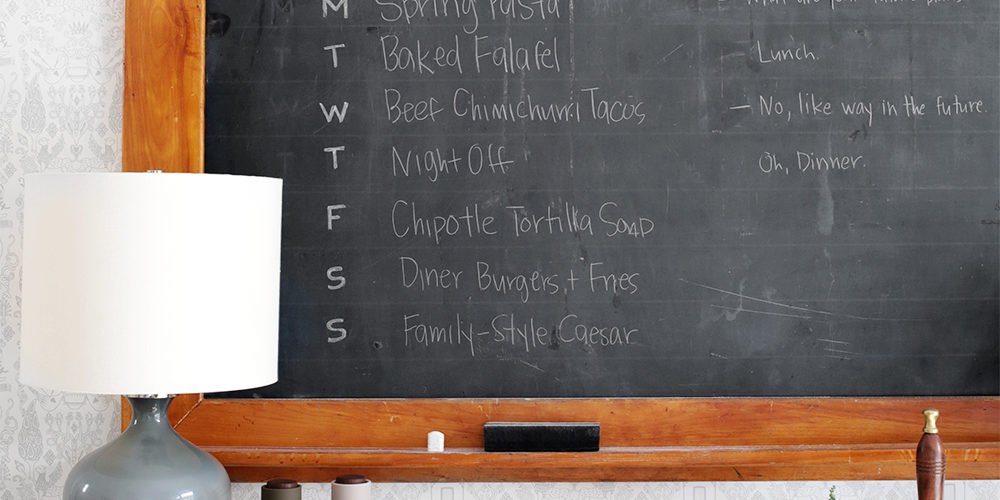 M Spring Pasta
T Baked Falafel
W Beef Chimichurri Tacos
T Night Off
F Chipotle Tortilla Soup
S Diner Burgers + Fries
S Family-Style Caesar
- What are your future plans
Lunch.
- No, like way in the future.
Oh, Dinner.